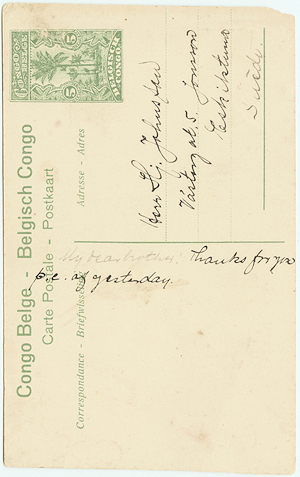 CONGO BELGE
BELGISCH CONGO
5 5
Congo Belge - Belgisch Congo
Carte Postale - Postkaart
Correspondance - Briefwisseling
Adresse - Adres
Herr Hj. Johnsson
5
Eskilstuna
Suède
My dear brother! Thanks for you
p.c. of yesterday.